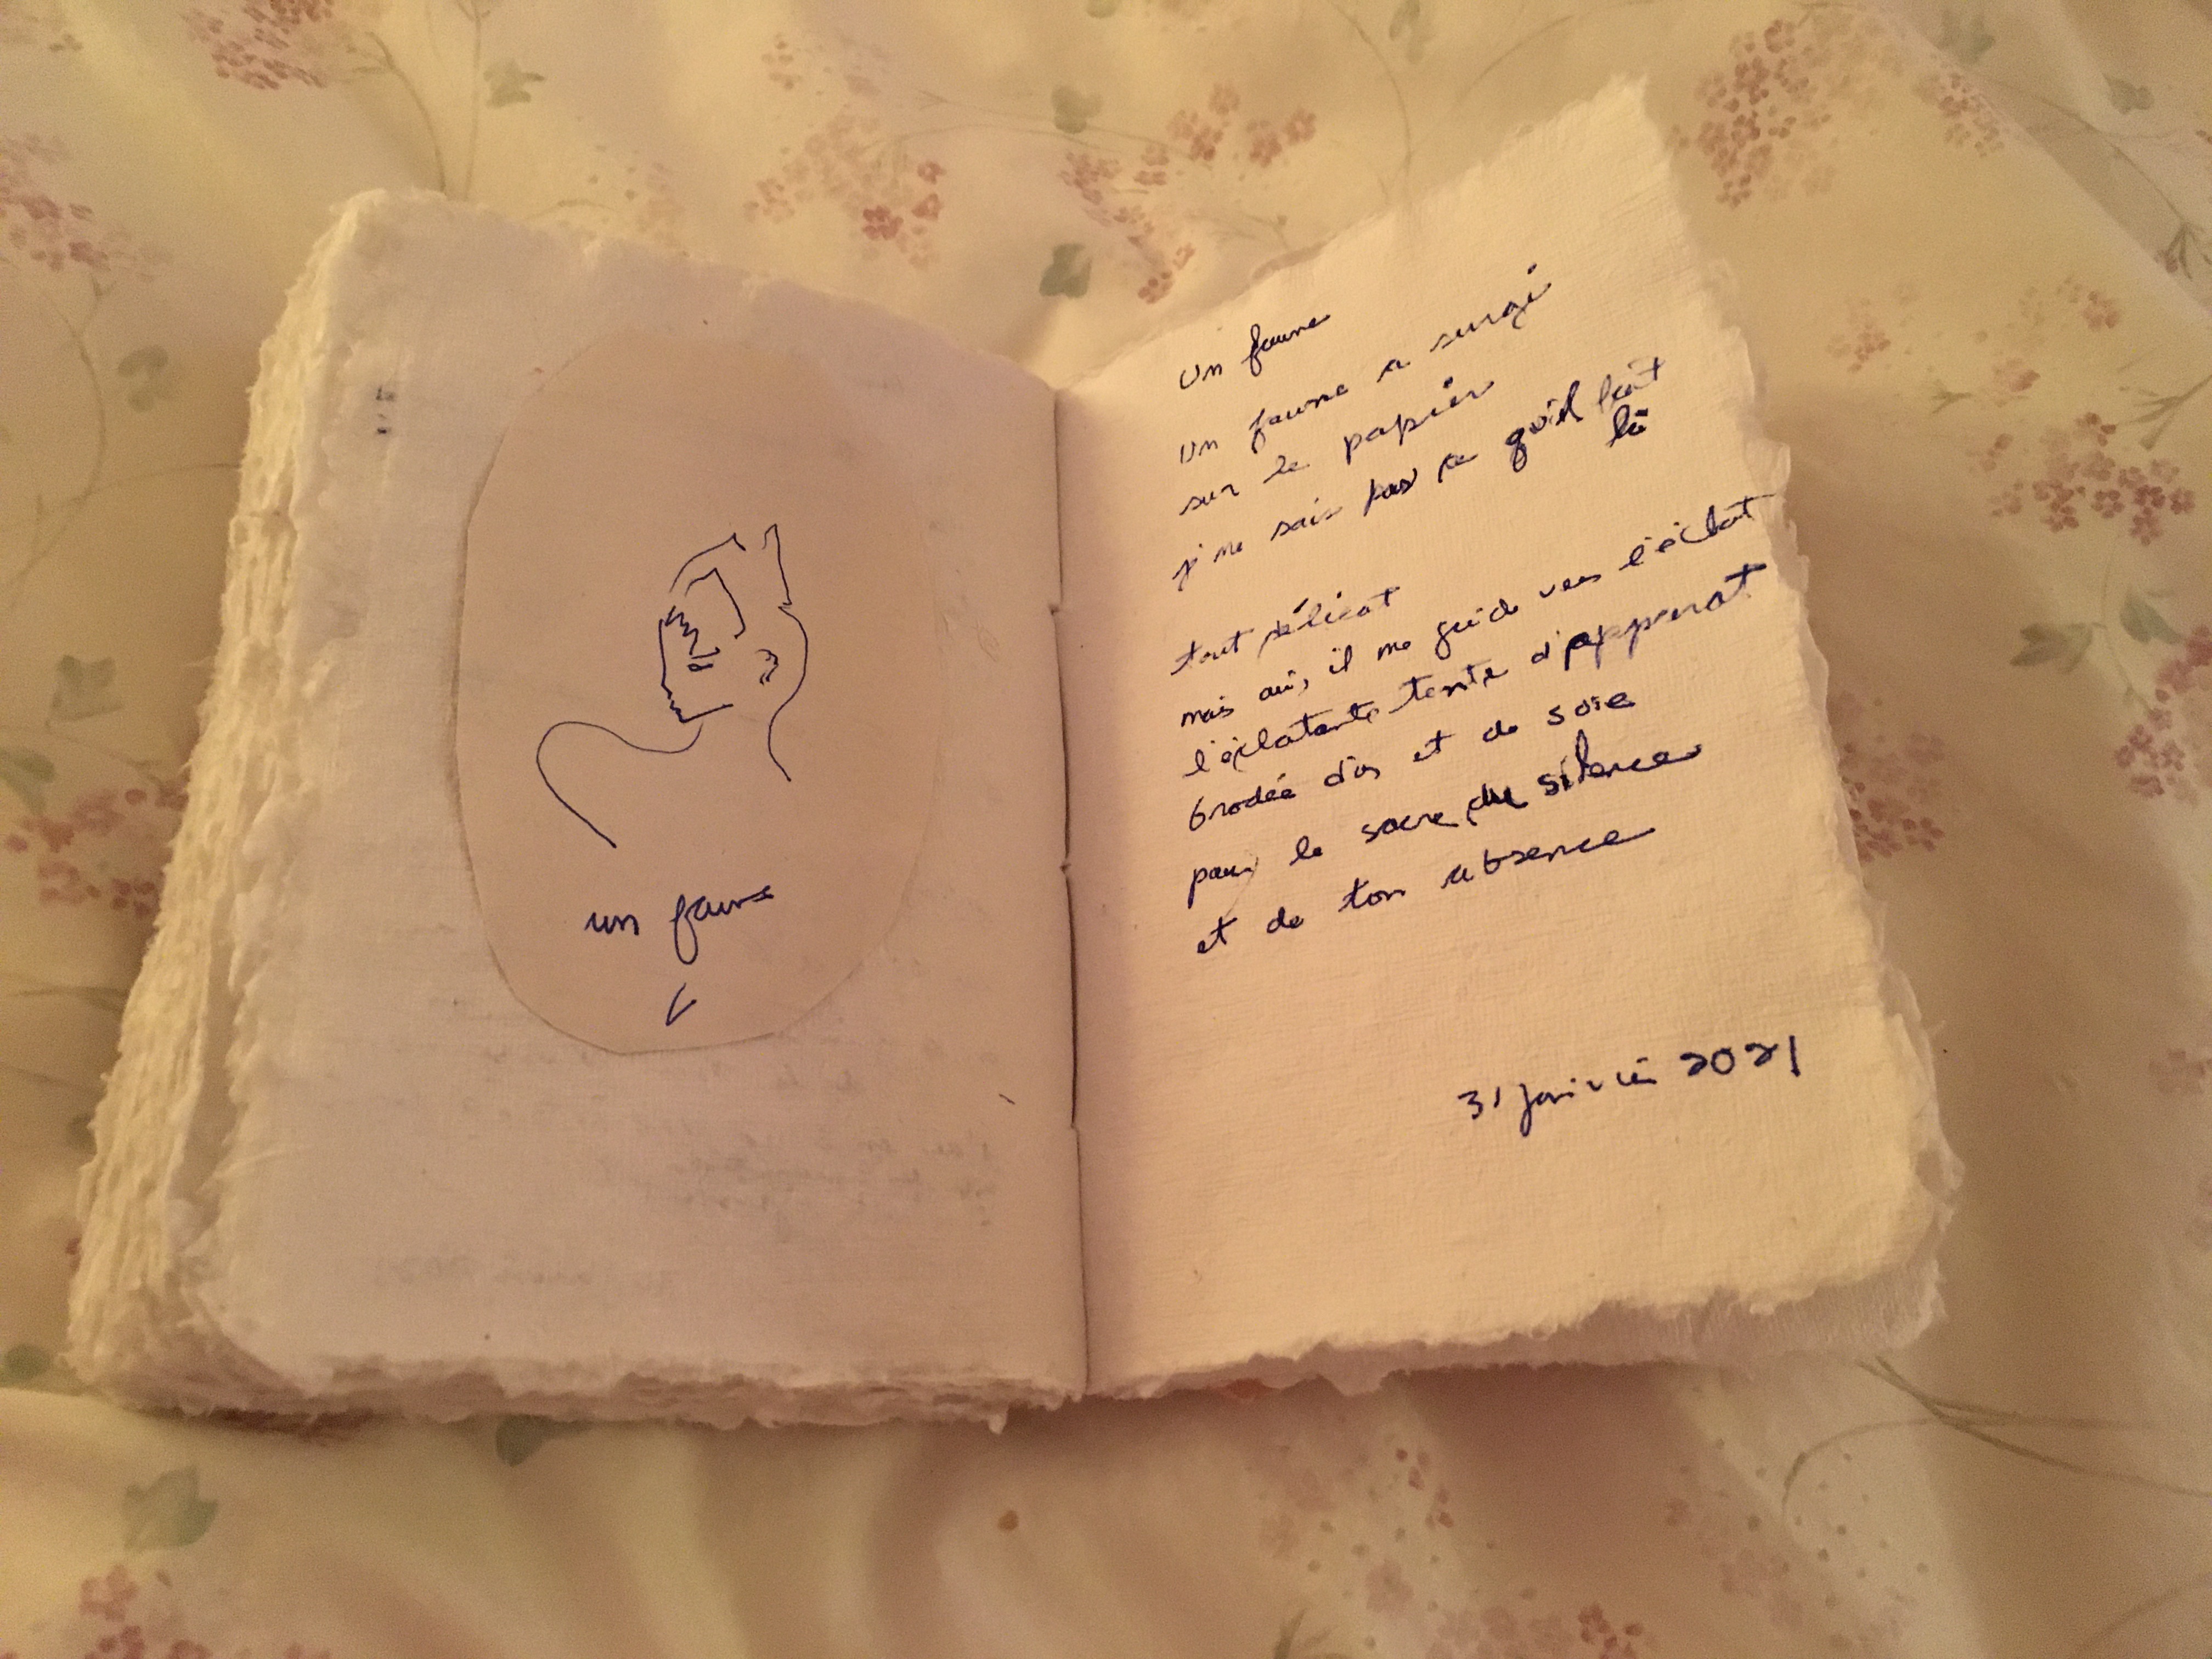 un faune
un faune
un faune a surgi
sur le papier
je ne sais pas ce qu'il fait
là
tout délicat
mais ami, il me guide vers l'éclat
l'éclatante tente d'apparat
brodée d'or et de soie
pour le sacre du silence
et de ton absence
31 janvier 2021